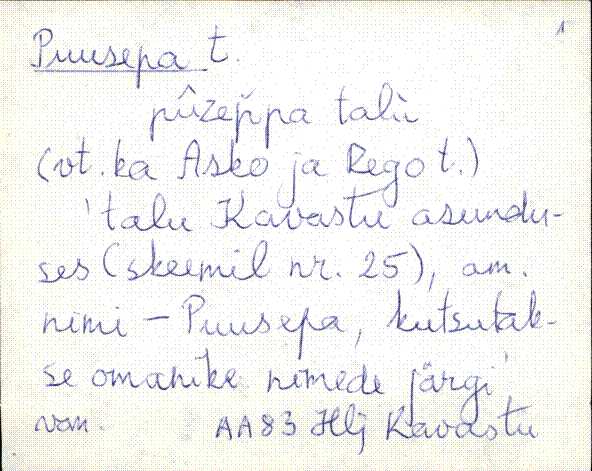 1
Puusepa t.
pûzep̆pa talù
(vt. ka Asko ja Rego t.)
'talu Kavastu asundu-
ses (skeemil nr. 25), am.
nimi – Puusepa, kutsutak-
se omanike nimede järgi
van. AA83 Hlj Kavastu